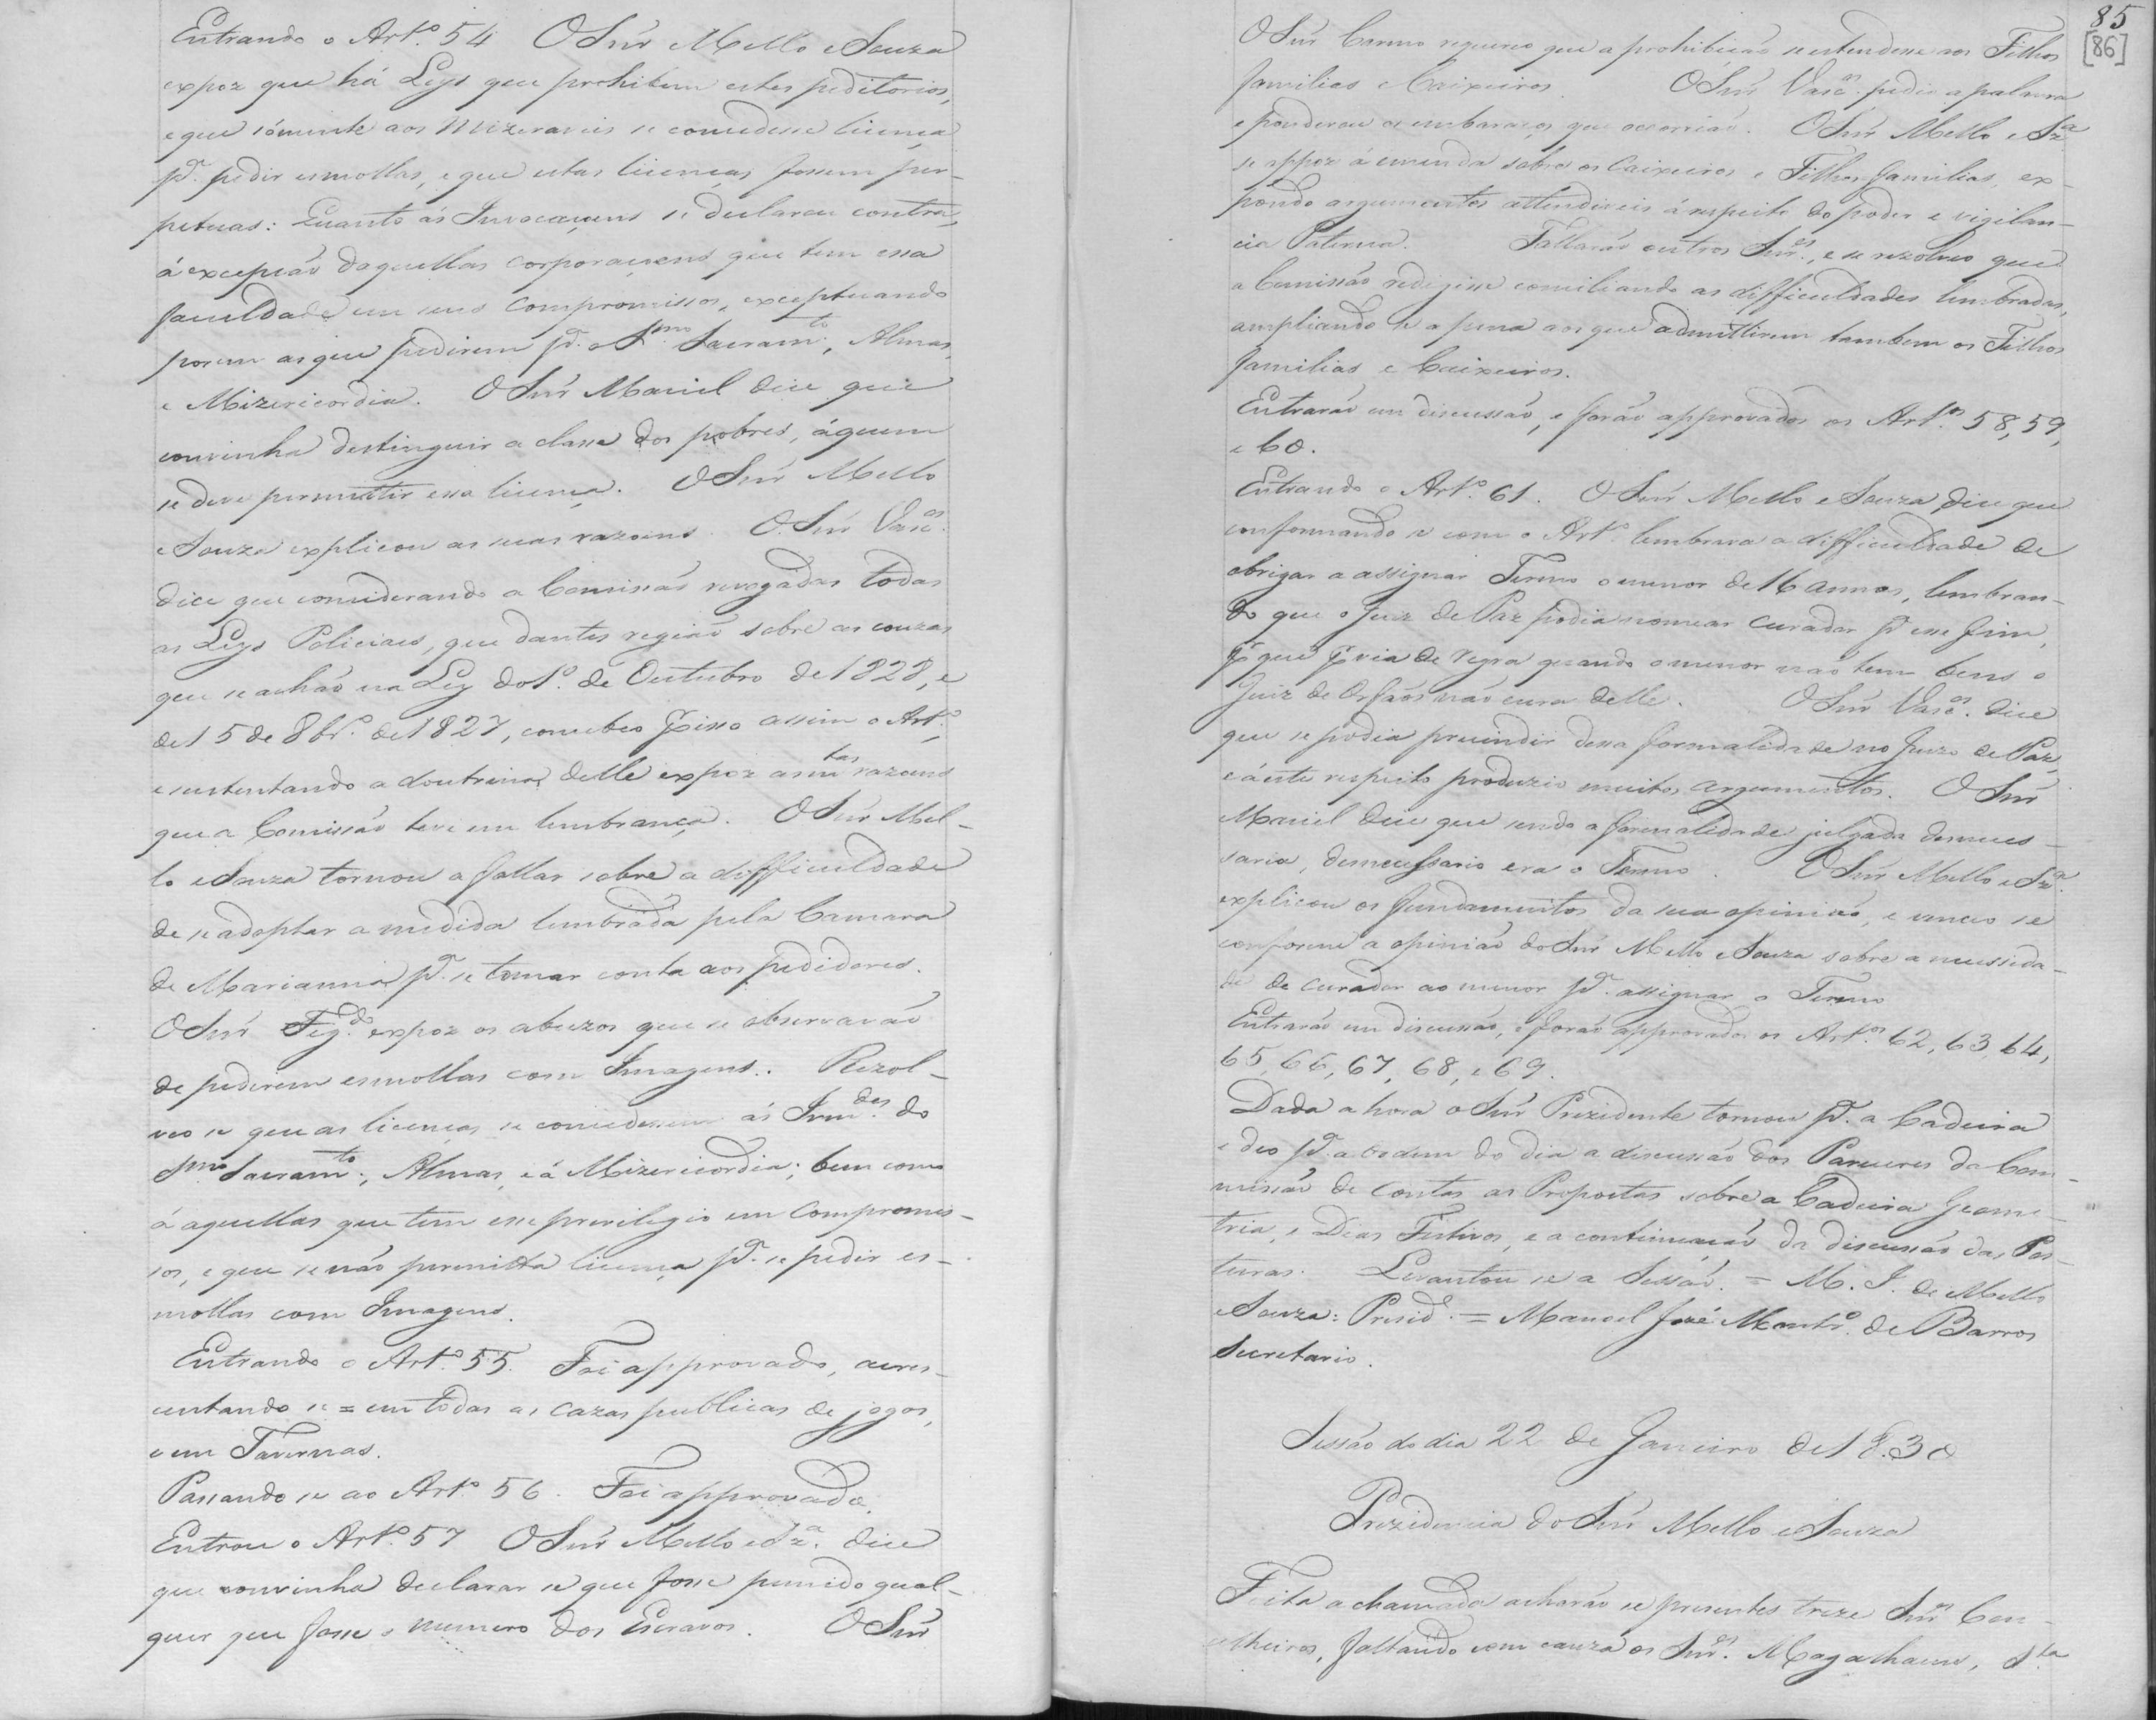 Entrando o Art.º 54 O Snr Mello e Souza
expoz que há Leys que prohibem estes peditorios,
e que sómente aos Mizeraveis se concedesse licença
p.ª pedir esmollas, e que estas licenças fossem per-
petuas: Quanto ás Invocaçoens se declarou contra,
á excepção daquellas corporaçoens que tem essa
faculdade em seus compromissos, exceptuando
porem as que pedirem p.ª o S.mo Sacram.to, Almas,
e Mizericordia. O Snr Maciel dice que
convinha destinguir a classe dos pobres, á quem
se deve permittir essa licença. O Snr Mello
e Souza explicou as suas razoens. O Snr Vasc.os
dice que considerando a Comissão revogadas todas
as Leys Policiaes, que dantes região sobre as couzas
que se achão na Ley do 1.º de Outubro de 1828, e
de 15 de 8br.º de 1827, concebeo p.r isso assim o Art.º,
e sustentando a doutrina delle expoz as m.tas razoens
que a Comissão teve em lembrança. O Snr Mel-
lo e Souza tornou a fallar sobre a difficuldade
de se adoptar a medida lembrada pela Camara
de Marianna p.ª se tomar conta aos pedidores.
O Snr Fig.do expoz os abuzos que se observavão
de pederem esmollas com Imagens. Rezol-
veo se que as licenças se concedessem ás Irm.des do
S.mo Sacram.to, Almas, e á Mizericordia; bem como
á aquellas que tem esse previlegio em Compromis-
sos, e que se não permitta licença p.ª se pedir es-
mollas com Imagens.
Entrando o Art.º 55. Foi approvado, acres-
centando se = em todas as cazas publicas de jogos,
e em Tavernas.
Passando se ao Art.º 56. Foi approvado.
Entrou o Art.º 57 O Snr Mello e Sz.ª dice
que convinha declarar se que fosse punido qual-
quer que fosse o numero dos Escravos. O Snr
85
[86]
O Snr Carmo requereo que a prohibição se estendesse aos Filhos
familias e Caixeiros. O Snr Vasc.os pedio a palavra
e ponderou os embaraços que occorrião. O Snr Mello e Sz.ª
se oppoz á emenda sobre os Caixeiros e Filhos familias, ex-
pondo argumentos attendiveis á respeito do poder e vigilan-
cia Paterna. Fallarão outros Snr.es, e se rezolveo que
a Comissão redigisse conciliando as difficuldades lembradas,
ampliando se a pena aos que admittirem tambem os Filhos
familias e Caixeiros.
Entrarão em discussão, e forão approvados os Art.os 58, 59,
e 60.
Entrando o Art.º 61. O Snr Mello e Souza dice que
conformando se com o Art.º lembrava a difficuldade de
obrigar a assignar Termo o menor de 16 annos, lembran-
do que o Juiz de Paz podia nomear curador p.ª esse fim,
p.r que p.r via de regra quando o menor não tem bens o
Juiz de Orfãos não cura delle. O Snr Vasc.os dice
que se podia prescindir dessa formalidade no Juizo de Paz,
e á este respeito produzio muitos argumentos. O Snr
Maciel dice que sendo a formalidade julgada desneces-
saria, desnecessario era o Termo. O Snr Mello e Sz.ª
explicou os fundamentos da sua opinião, e venceo se
conforme a opinião do Snr Mello e Souza sobre a necessida-
de de curador ao menor p.ª assignar o Termo
Entrarão em discussão, e forão approvados os Art.os 62, 63, 64,
65, 66, 67, 68, e 69.
Dada a hora o Snr Prezidente tornou p.ª a Cadeira
e deo p.ª a ordem do dia a discussão dos Pareceres da Com-
missão de Contas as Propostas sobre a Cadeira Geome-
tria, e Dias Festivos, e a continuação da discussão das Pos-
turas. Levantou se a Sessão. = M. I. de Mello
e Souza: Presid.e = Manoel José Montr.º de Barros
Secretario.
Sessão do dia 22 de Janeiro de 1830
Prezidencia do Snr Mello e Souza
Feita a chamada acharão se presentes treze Snr.es Con-
celheiros, faltando com cauza os Snr.es Magalhaens, S.ta